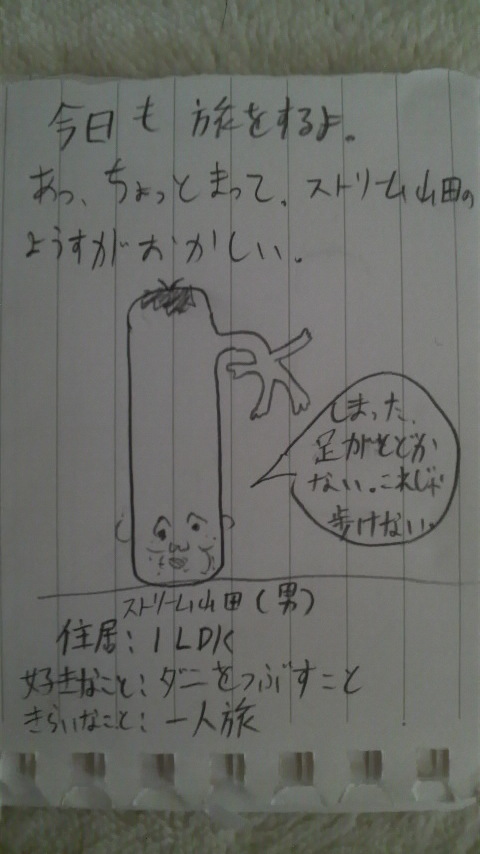 今日も旅をするよ。
あっ、ちょっとまって。ストリーム山田の
ようすがおかしい。
しまった、
足がとどか
ない。これじゃ
歩けない。
ストリーム山田(男)
住居:1LDK
好きなこと:ダニをつぶすこと
きらいなこと:一人旅